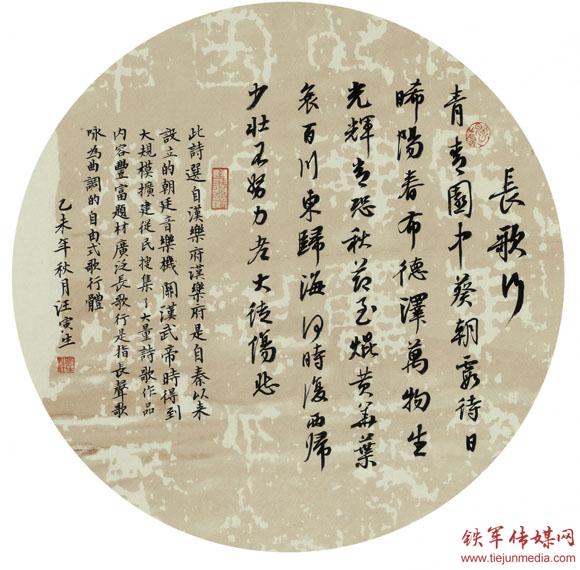 長歌行
青青園中葵朝露待日
晞陽春布德澤萬物生
光輝常恐秋節至焜黃華葉
衰百川東歸海何時復西歸
少壯不努力老大徒傷悲
此詩選自漢樂府漢樂府是自秦以来
設立的朝廷音樂機關漢武帝時得到
大規模擴建從民搜集了大量詩歌作品
内容豐富題材廣泛長歌行是指長聲歌
咏為曲調的自由式歌行體
乙未年秋月汪寅生
铁军传媒网
www.tiejunmedia.com